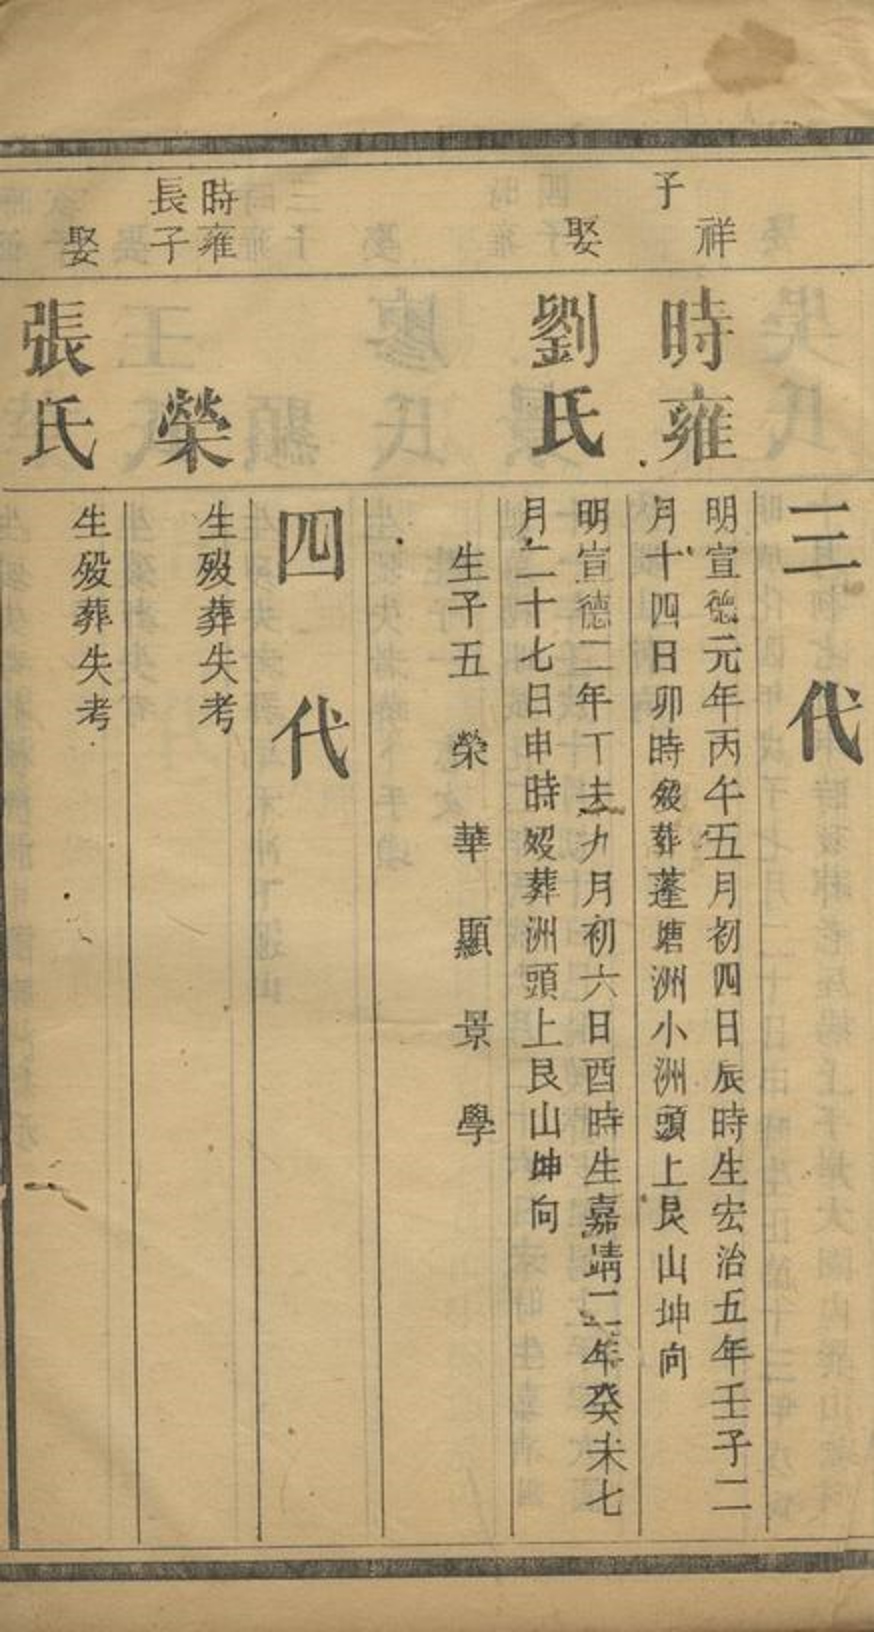 三代
祥子
時雍
明宣德元年丙午五月初四日辰時生宏治五年壬子二
月十四日卯時殁葬蓬塘洲小洲頭上艮山坤向
娶
劉氏
明宣德二年丁未九月初六日酉時生嘉靖二年癸未七
月二十七日申時殁葬洲頭上艮山坤向
生子五 榮 華 顯 景 學
四代
時雍
長子
榮
生殁葬失考
娶
張氏
生殁葬失考